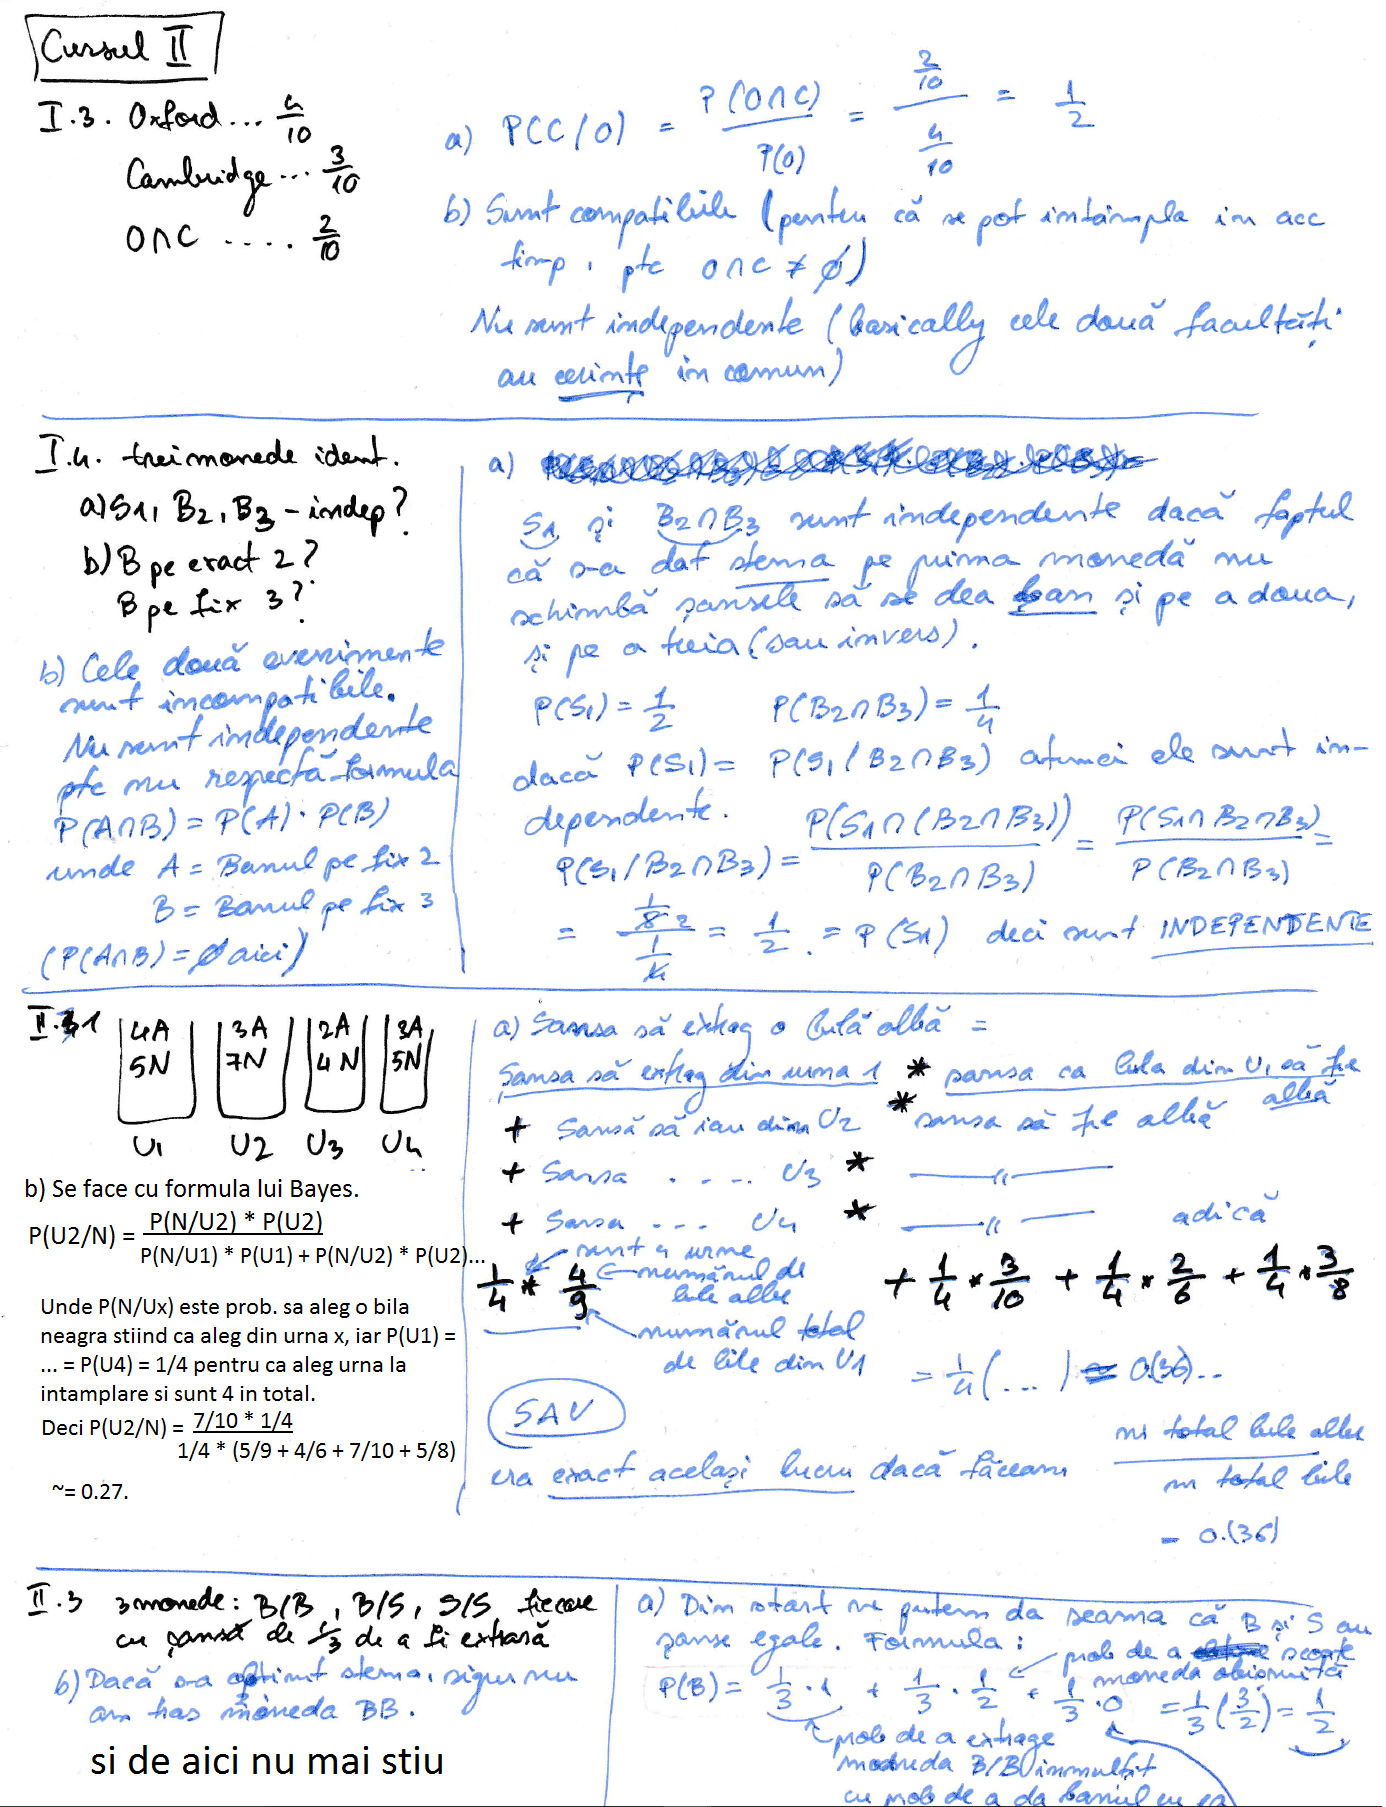 Cursul II
I.3. Oxford... 4/10
Cambridge... 3/10
O∩C ..... 2/10
a) P(C/O) = P(O∩C) / P(O) = 2/10 / 4/10 = 1/2
b) Sunt compatibile (pentru că se pot întâmpla in acc
timp, ptc O∩C ≠ ∅)
Nu sunt independente (basically cele două facultăți
au cerințe in comun)
I.4. trei monede ident.
a) S1, B2, B3 - indep?
b) B pe exact 2?
B pe fix 3?
b) Cele două evenimente
sunt incompatibile.
Nu sunt independente
ptc nu respectă formula
P(A∩B) = P(A) · P(B)
unde A = Banul pe fix 2
B = Banul pe fix 3
(P(A∩B) = ∅ aici)
a)
S1 și B2∩B3 sunt independente dacă faptul
că s-a dat stema pe prima monedă nu
schimbă șansele să se dea ban și pe a doua,
și pe a treia (sau invers).
P(S1) = 1/2 P(B2∩B3) = 1/4
dacă P(S1) = P(S1/B2∩B3) atunci ele sunt in-
dependente.
P(S1/B2∩B3) = P(S1∩(B2∩B3)) / P(B2∩B3) = P(S1∩B2∩B3) / P(B2∩B3) =
= 1/8 2 / 1/4 = 1/2 = P(S1) deci sunt INDEPENDENTE
II.1
4A 3A 2A 3A
5N 7N 4N 5N
U1 U2 U3 U4
b) Se face cu formula lui Bayes.
P(U2/N) = P(N/U2) * P(U2)
P(N/U1) * P(U1) + P(N/U2) * P(U2)...
Unde P(N/Ux) este prob. sa aleg o bila
neagra stiind ca aleg din urna x, iar P(U1) =
... = P(U4) = 1/4 pentru ca aleg urna la
intamplare si sunt 4 in total.
Deci P(U2/N) = 7/10 * 1/4
1/4 * (5/9 + 4/6 + 7/10 + 5/8)
~= 0.27.
a) Sansa să extrag o bilă albă =
Sansa să extrag din urna 1 * sansa ca bila din U1 să fie
albă
+ Sansă să iau din U2 * sansa să fie albă
+ Sansa .... U3 * —〃—
+ Sansa ... U4 * —〃— adică
sunt 4 urne
1/4 * 4/9 numărul de
bile albe
+ 1/4 * 3/10 + 1/4 * 2/6 + 1/4 * 3/8
numărul total
de bile din U1
= 1/4 (...) ≈ 0.(36)...
SAU
era exact același lucru dacă făceam nr total bile albe
nr total bile
= 0.(36)
II.3 3 monede: B/B, B/S, S/S fiecare
cu șansă de 1/3 de a fi extrasă
b) Dacă s-a obținut stema, sigur nu
am tras moneda BB.
si de aici nu mai stiu
a) Din start ne putem da seama că B și S au
șanse egale. Formula: prob de a scoate
moneda obișnuită
P(B) = 1/3 · 1 + 1/3 · 1/2 + 1/3 · 0 = 1/3 (3/2) = 1/2
prob de a extrage
moneda B/B inmulțit
cu prob de a da banul cu ea